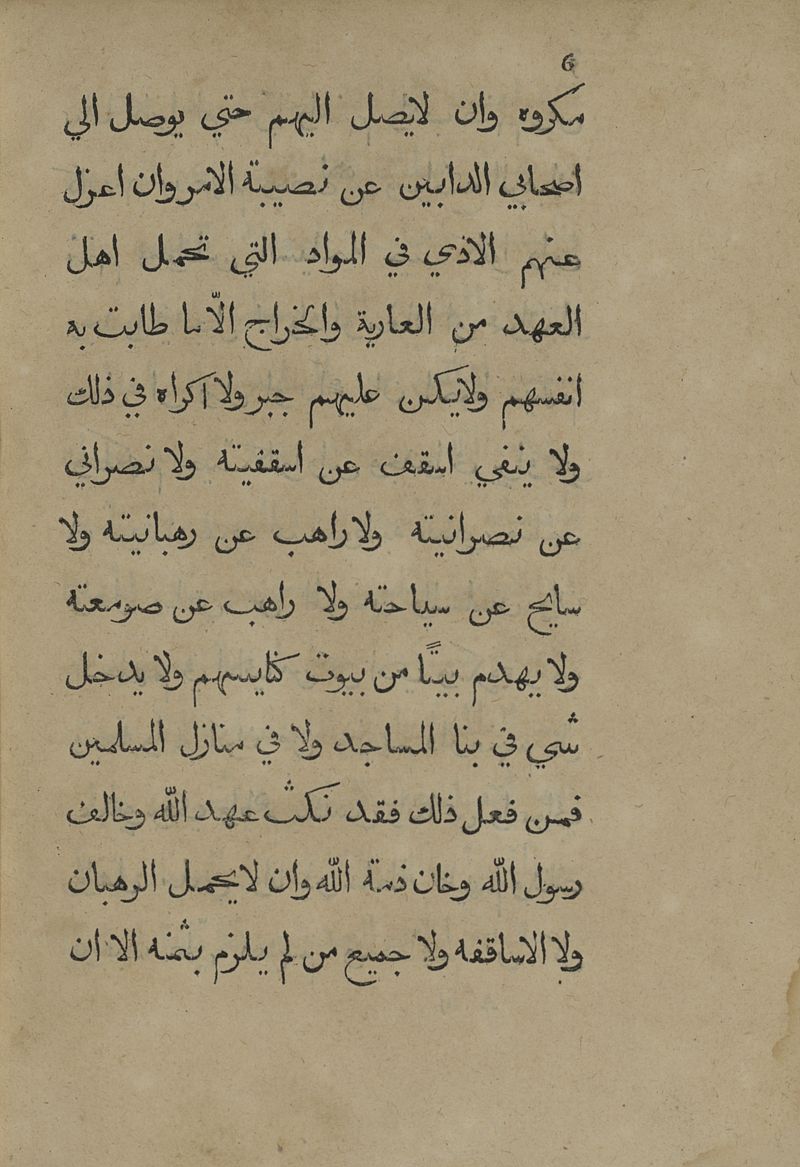 6
مكروه وان لايصل اليهم حتي يوصل الي
اصحابي الدابين عن نصيبة الامر وان اعزل
عنهم الاذي في المواد التي تحمل اهل
العهد من العارية والخراج الّا ما طابت به
انفسهم ولايكن عليهم جبر ولا اكراه في ذلك
ولا ينفي اسقف عن اسقفيته ولا نصراني
عن نصرانيته ولا راهب عن رهبانيته ولا
سايح عن سياحته ولا راهب عن صومعته
ولا يهدم بيتًا من بيوت كنايسهم ولا يدخل
شي في بنا المساجد ولا في منازل المسلمين
فمن فعل ذلك فقد نكث عهد الله وخالف
رسول الله وخان ذمة الله وان لايحمل الرهبان
ولا الاساقفه ولا جميع من لم يلزم بثمنه الا ان